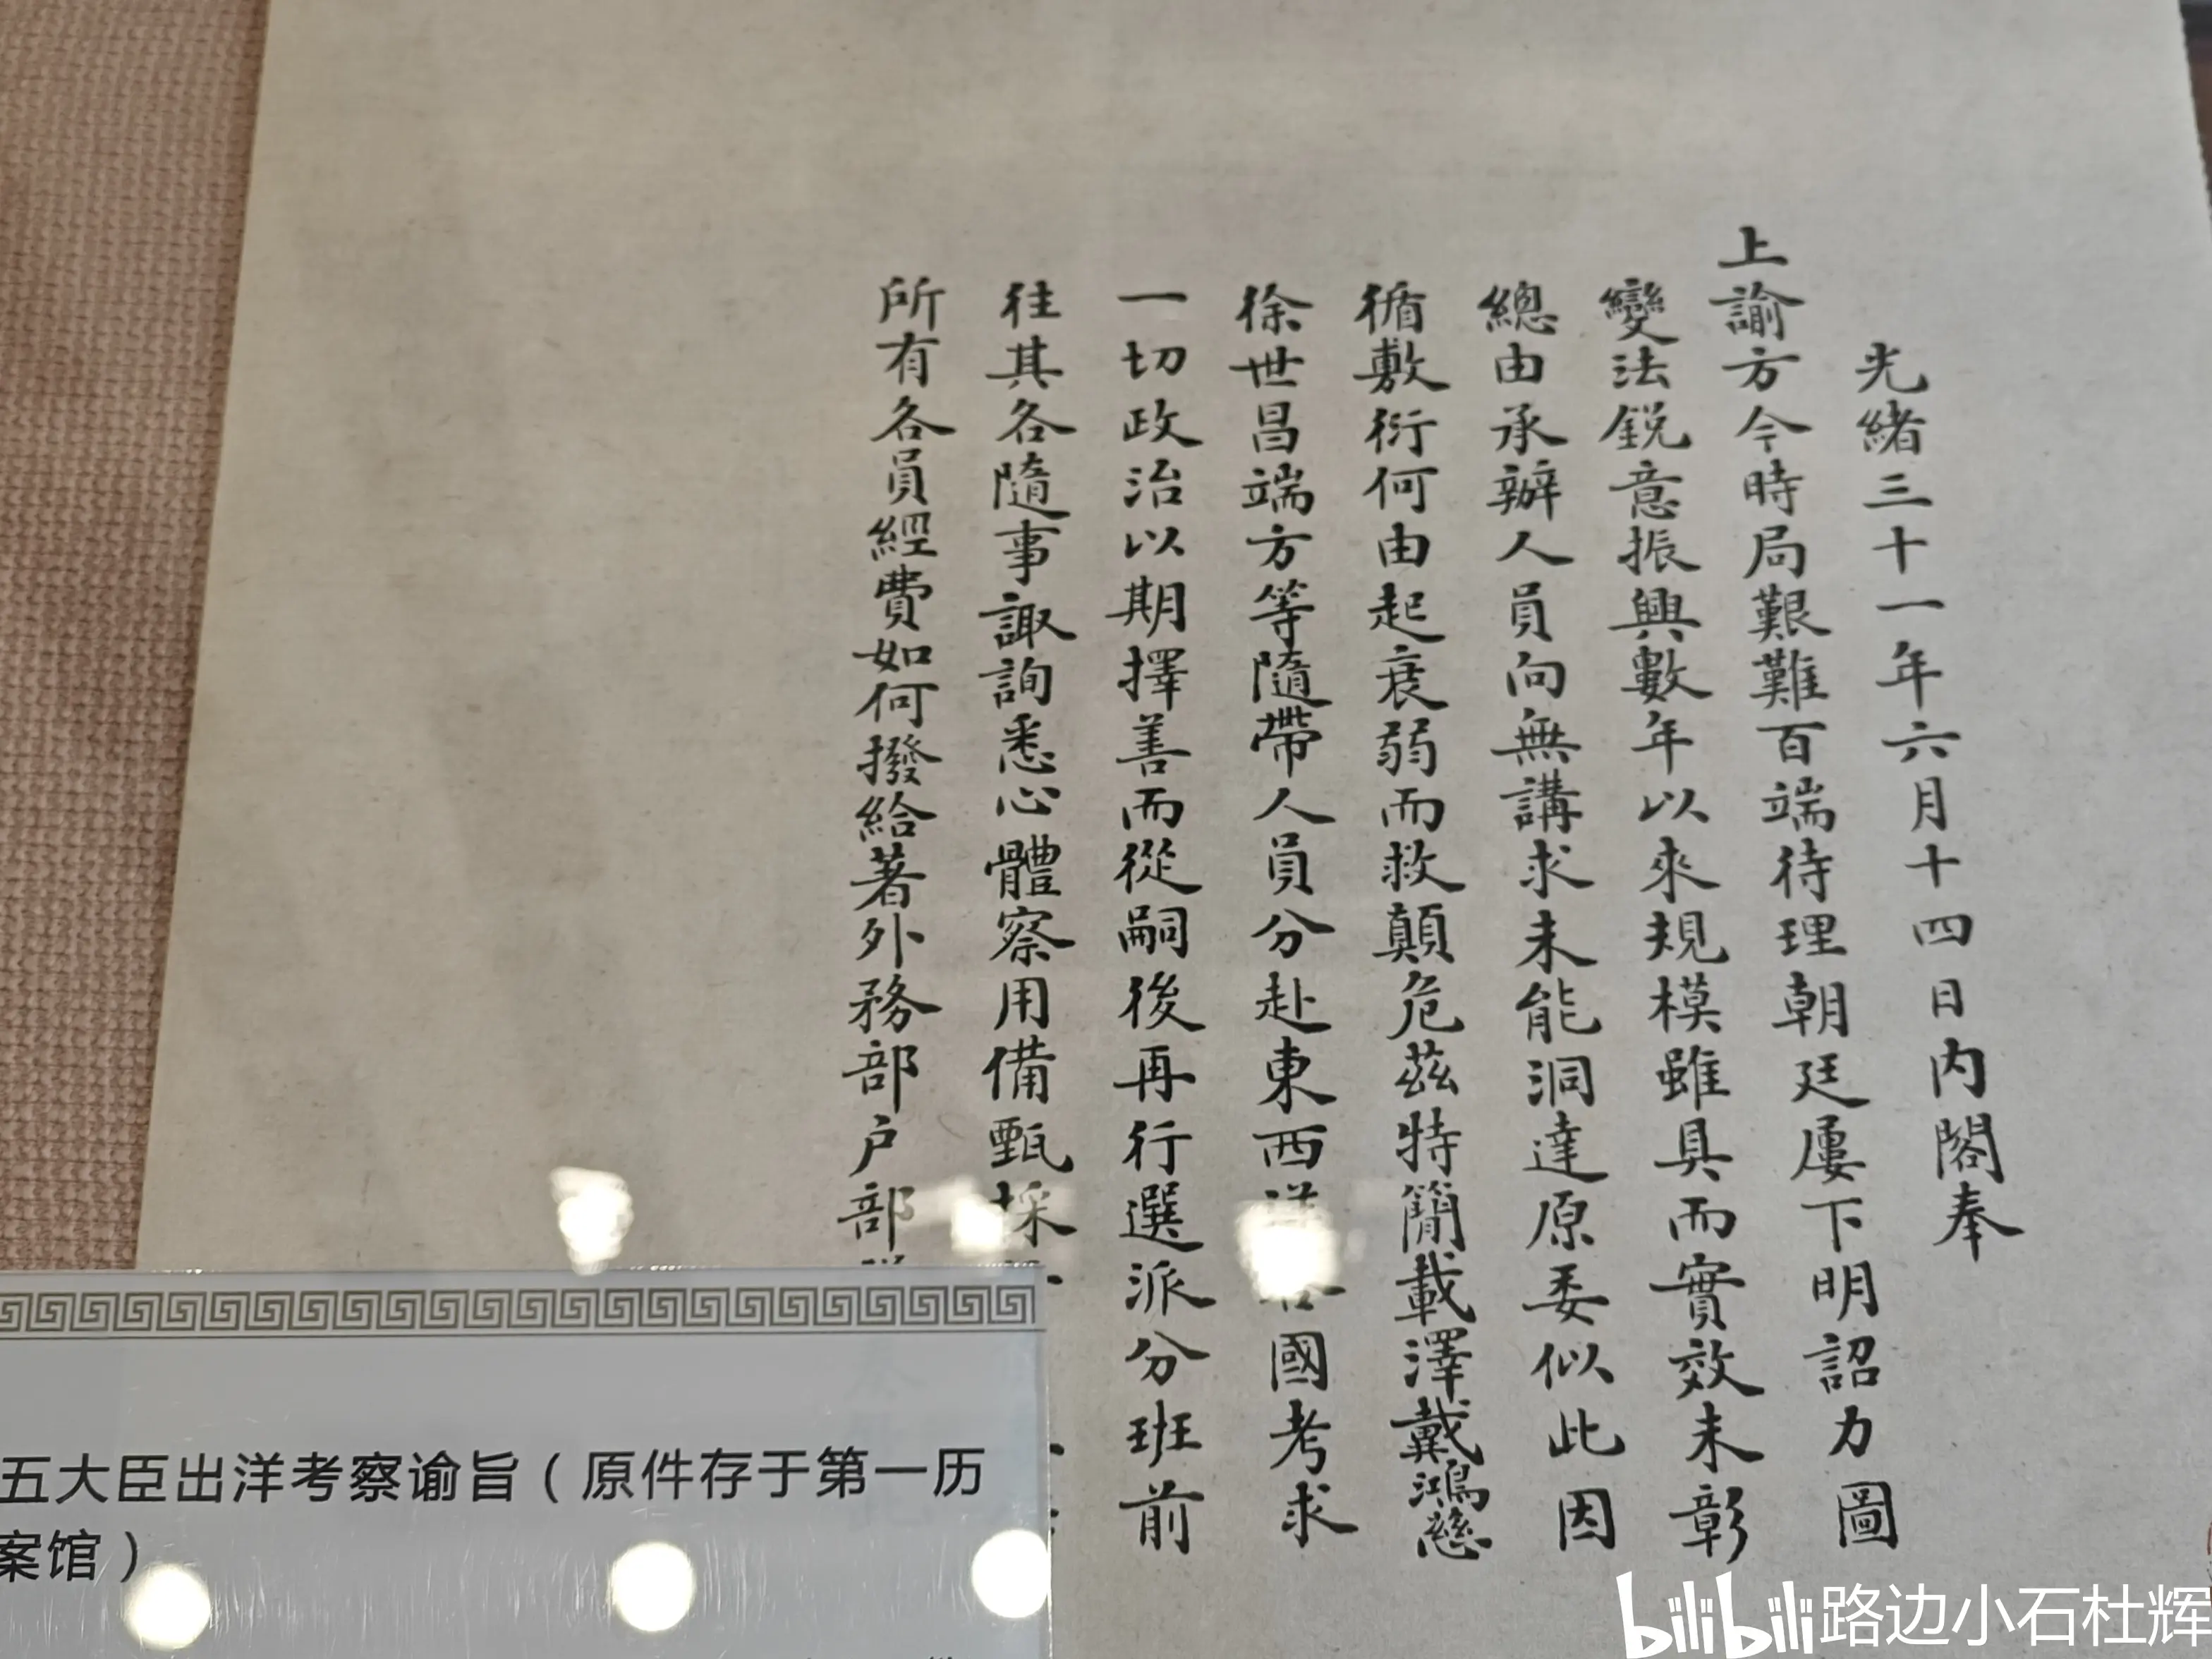 光緒三十一年六月十四日内閣奉
上諭方今時局艱難百端待理朝廷屢下明詔力圖
變法鋭意振興數年以來規模雖具而實效未彰
總由承辦人員向無講求未能洞達原委似此因
循敷衍何由起衰弱而救顛危兹特簡載澤戴鴻慈
徐世昌端方等隨帶人員分赴東西洋各國考求
一切政治以期擇善而從嗣後再行選派分班前
往其各隨事諏詢悉心體察用備甄採
所有各員經費如何撥給著外務部户部
五大臣出洋考察谕旨（原件存于第一历
案馆）
bilibili 路边小石杜辉